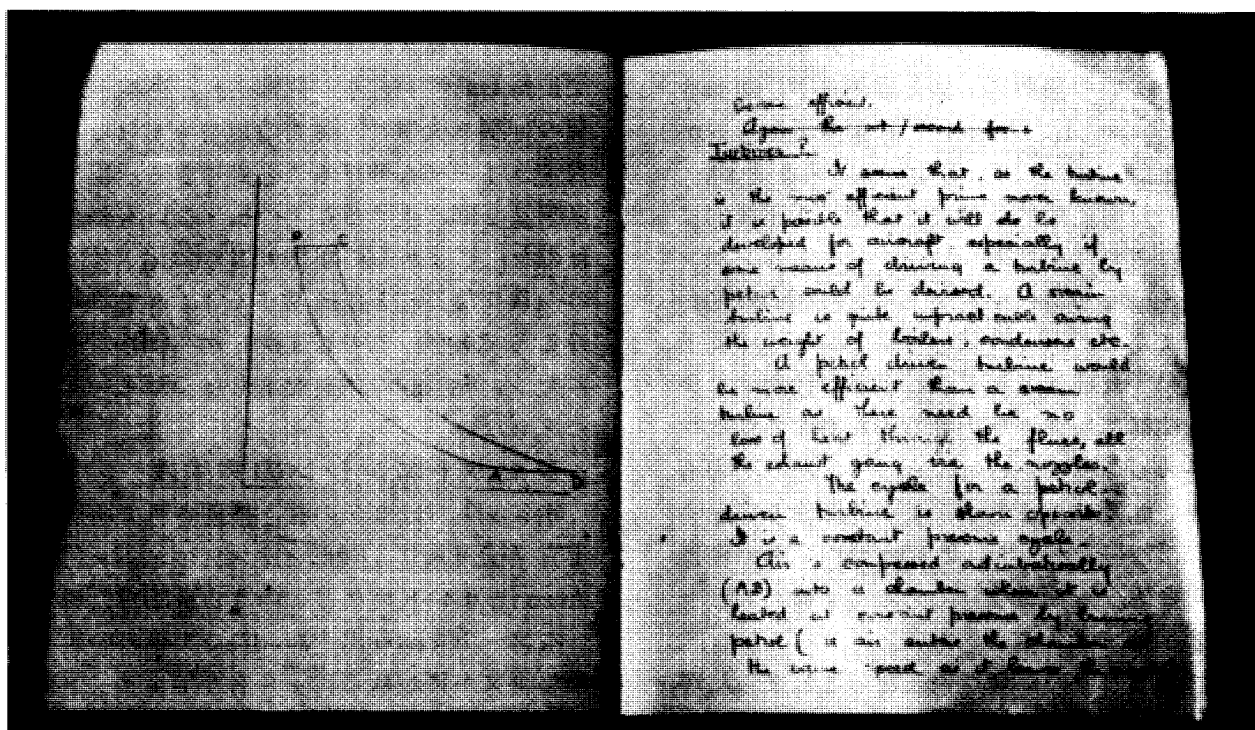 B C
A D
Again the
Turbines?
It seems that, as the turbine
is the most efficient prime mover known,
it is possible that it will be
developed for aircraft especially if
some means of driving a turbine by
petrol could be devised. A steam
turbine is quite impracticable owing
the weight of boilers, condensers etc.
A petrol driven turbine would
be more efficient than a steam
turbine as there need be no
loss of heat through the flues, all
the exhaust going the nozzles.
The cycle for a petrol
driven turbine is shown opposite.
It is a constant pressure cycle.
Air is compressed adiabatically
(AB) into a chamber where it is
heated at constant pressure by burning
petrol ( air enters the chamber at
the same speed as it leaves